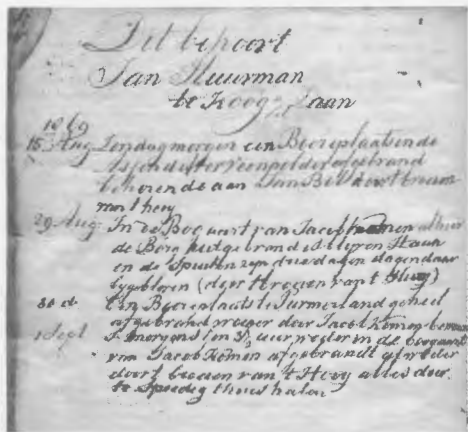 Dit behoort
Jan Stuurman
te Koog Zaan
1869
15 Aug Zondagmorgen een Boereplaats in de
afgebrand
behorende aan Jan Bell door broeien
van 't hooy
29 Aug: In de Bogaart van Jacob Komen alhier
de Berg uitgebrand is blyven Staan
en de Spuiten zyn drie dagen daar
bygebleven (door broeien van 't Hooy)
30 d° Een Boereplaats te Purmerland geheel
afgebrand vroeger door Jacob Komen bewoon
1 Sept S'morgens ten uur weder in de bogaart
van Jacob Komen afgebrandt al weder
door broeien van 't Hooy alles door
te Spoedig thuis halen